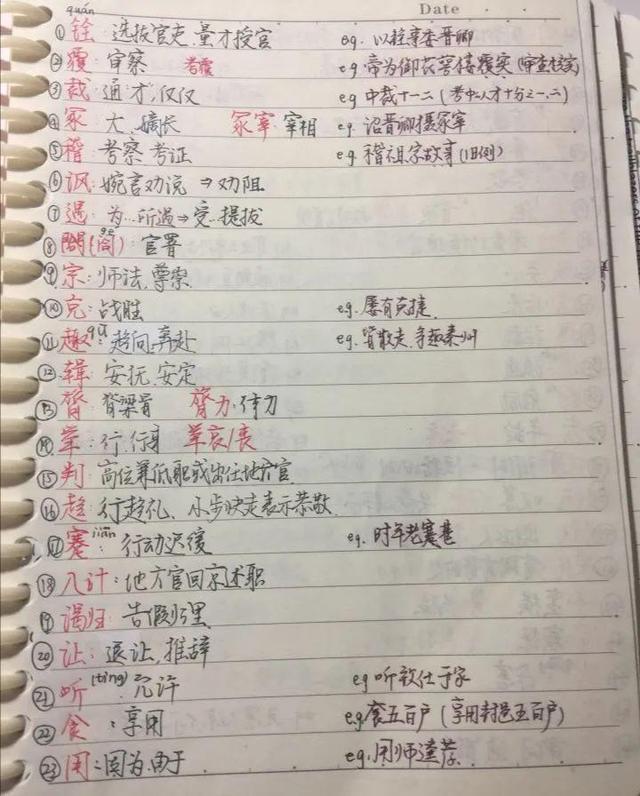 quán
Date
①铨：选拔官吏，量才授官 eg. 以铨事委晋卿
②覆：审察 考覆 eg. 帝为御衣签接覆实（审查核实）
③裁：通"才"，仅仅 eg 中裁十一二（考中人才十分之一、二）
④冢：大、嫡长 冢宰：宰相 eg. 诏晋卿摄冢宰
⑤稽：考察 考证 eg. 稽祖宗故事（旧例）
⑥讽：婉言劝说 ⇒ 劝阻
⑦遇：为…所遇⇒受…提拔
⑧閤（阁）gé：官署
⑨宗：师法，尊崇
⑩克：战胜 eg. 屡有克捷
⑪趋qū：趋向，奔赴 eg. 皆散走，争趋秦州
⑫辑：安抚，安定
⑬膂：脊梁骨 膂力：体力
⑭举：行，行事 举哀/丧
⑮判：高位兼低职或出任地方官
⑯趋：行趋礼、小步快走表示恭敬
⑰蹇jiǎn：行动迟缓 eg. 时年老蹇甚
⑱入计：地方官回京述职
⑲谒归：告假归里
⑳让：退让，推辞
㉑听（tìng）：允许 eg 听致仕于家
㉒食：享用 eg. 食五百户（享用封邑五百户）
㉓用：因为，由于 eg. 用师逵荐